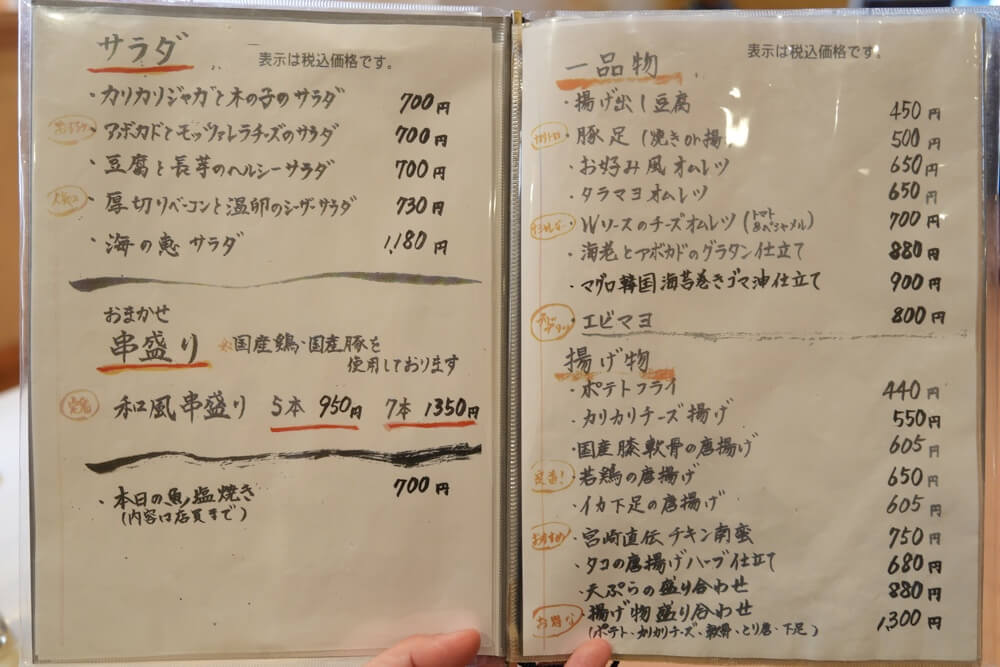 サラダ 表示は税込価格です。
・カリカリジャガと木の子のサラダ 700円
・アボカドとモッツァレラチーズのサラダ 700円
・豆腐と長芋のヘルシーサラダ 700円
・厚切りベーコンと温卵のシーザーサラダ 730円
・海の恵サラダ 1,180円
おまかせ
串盛り ※国産鶏・国産豚を
使用しております
和風串盛り 5本 950円 7本 1350円
・本日の魚塩焼き 700円
(内容は店員まで)
一品物 表示は税込価格です。
・揚げ出し豆腐 450円
・豚足(焼きor揚 500円
・お好み風オムレツ 650円
・タラマヨオムレツ 650円
・Wソースのチーズオムレツ(トマト&ベシャメル) 700円
・海老とアボカドのグラタン仕立て 880円
・マグロ韓国海苔巻きゴマ油仕立て 900円
・エビマヨ 800円
揚げ物
・ポテトフライ 440円
・カリカリチーズ揚げ 550円
・国産膝軟骨の唐揚げ 605円
定番! ・若鶏の唐揚げ 650円
・イカ下足の唐揚げ 605円
おすすめ ・宮崎直伝チキン南蛮 750円
・タコの唐揚げハーブ仕立て 680円
・天ぷらの盛り合わせ 880円
お得 ・揚げ物盛り合わせ 1,300円
(ポテト、カリカリチーズ、軟骨、とり唐、下足)